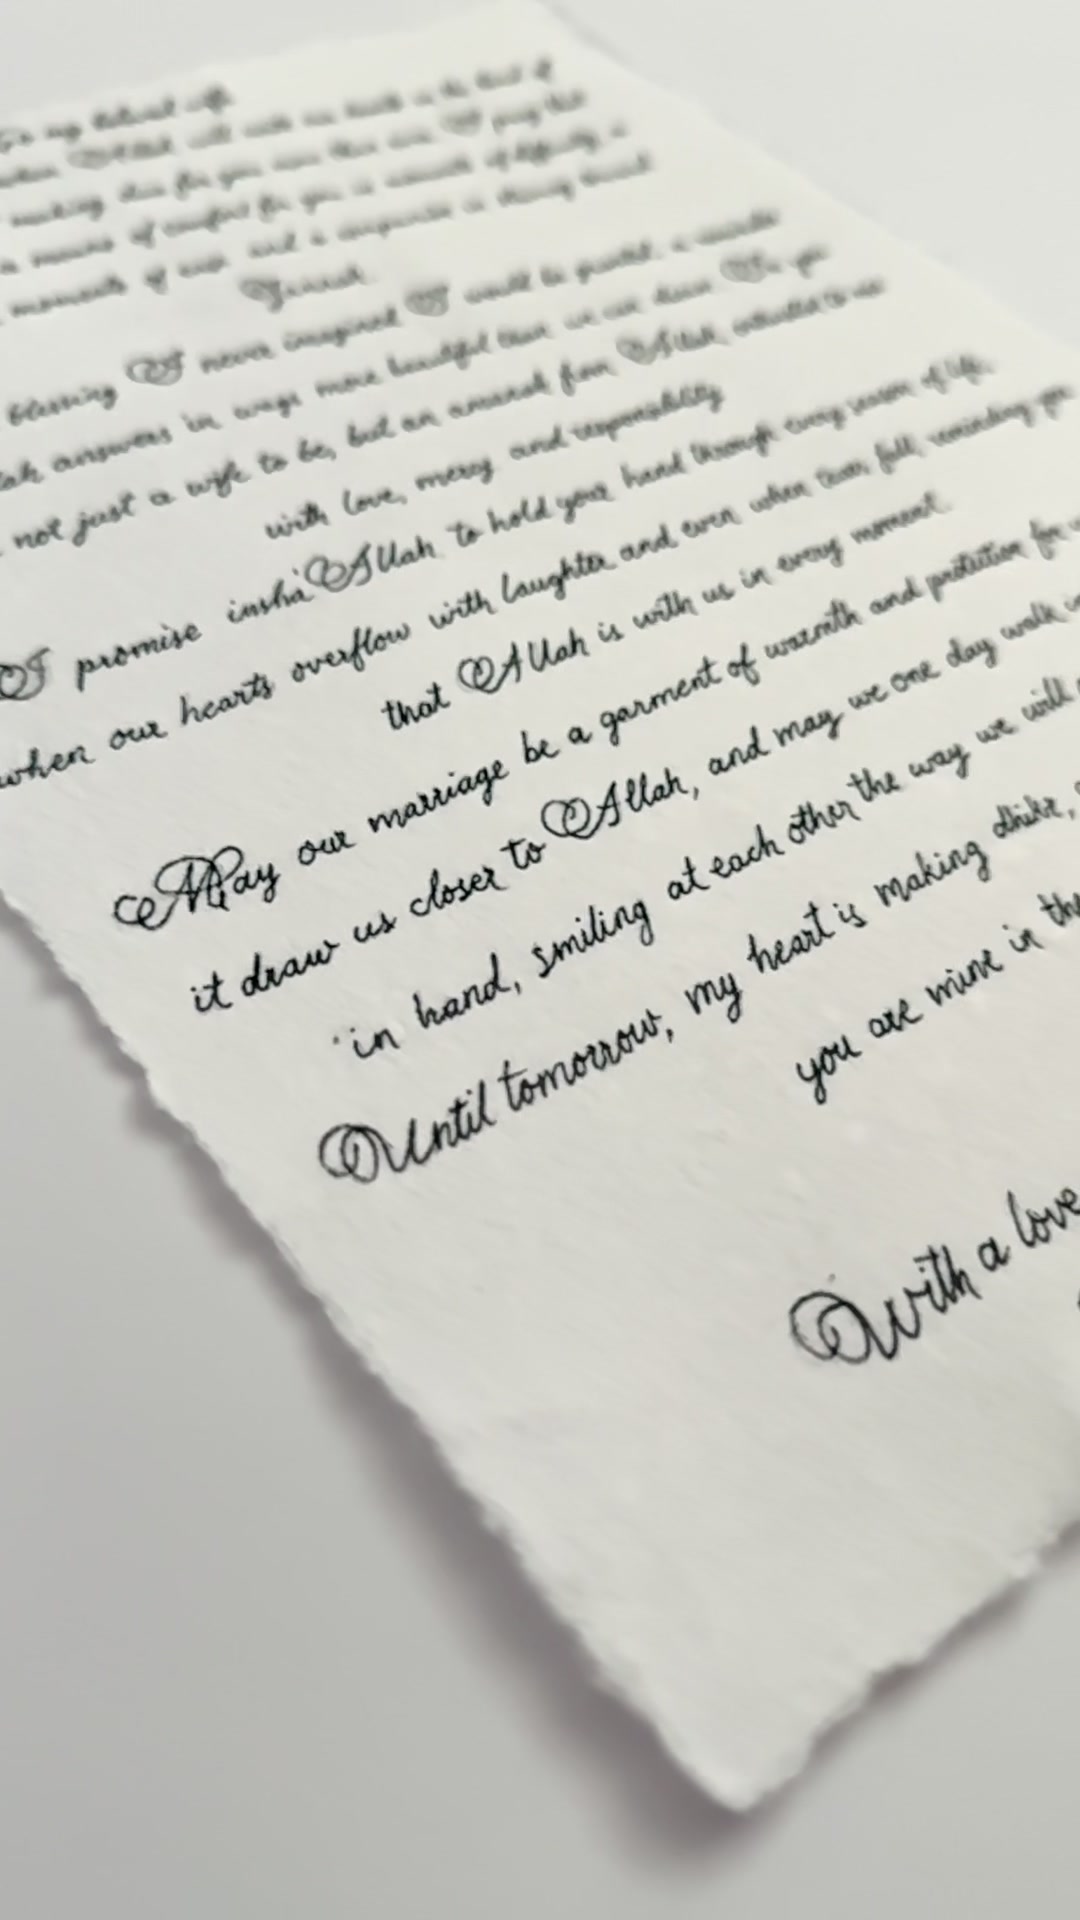 To my beloved wife
making dua for you
a means of comfort for you in moments of difficulty, a
moments of ease and a companion in striving toward
Jannah.
blessing I never imagined I would be granted, a
answers in ways more beautiful than we can dream. To you
not just a wife to be, but an amanah from Allah, entrusted to me
with love, mercy and responsibility
I promise insha'Allah to hold your hand through every season of life,
when our hearts overflow with laughter and even when tears fall, reminding you
that Allah is with us in every moment.
May our marriage be a garment of warmth and protection for
it draw us closer to Allah, and may we one day walk
in hand, smiling at each other the way we will
Until tomorrow, my heart is making dhikr,
you are mine in the
With a love